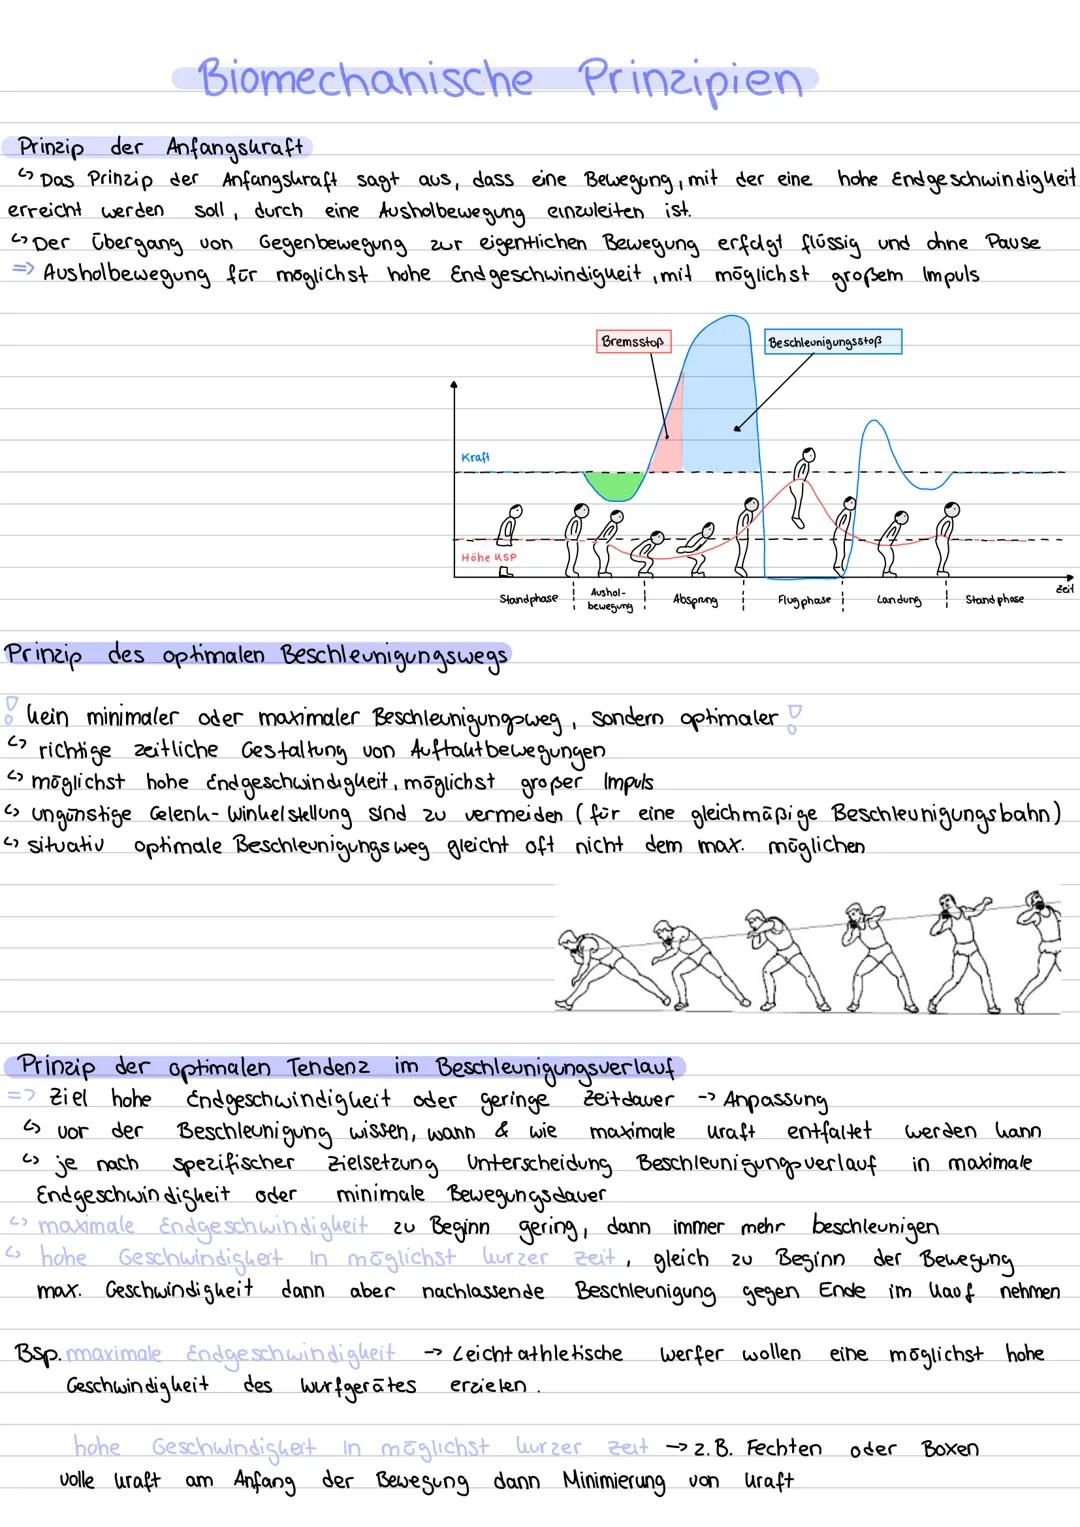 Biomechanische Prinzipien
Prinzip der Anfangskraft
↳ Das Prinzip der Anfangskraft sagt aus, dass eine Bewegung, mit der eine hohe Endgeschwindigkeit
erreicht werden soll, durch eine Ausholbewegung einzuleiten ist.
↳ Der Übergang von Gegenbewegung zur eigentlichen Bewegung erfolgt flüssig und ohne Pause
=> Ausholbewegung für möglichst hohe Endgeschwindigkeit, mit möglichst großem Impuls
Bremsstoß
Beschleunigungsstoß
Kraft
Höhe KSP
Zeit
Standphase
Aushol-
bewegung
Absprung
Flugphase
Landung
Standphase
Prinzip des optimalen Beschleunigungswegs
! kein minimaler oder maximaler Beschleunigungsweg, sondern optimaler !
↳ richtige zeitliche Gestaltung von Auftaktbewegungen
↳ möglichst hohe Endgeschwindigkeit, möglichst großer Impuls
↳ ungünstige Gelenk-Winkelstellung sind zu vermeiden (für eine gleichmäßige Beschleunigungsbahn)
↳ situativ optimale Beschleunigungsweg gleicht oft nicht dem max. möglichen
Prinzip der optimalen Tendenz im Beschleunigungsverlauf
=> Ziel hohe Endgeschwindigkeit oder geringe Zeitdauer -> Anpassung
↳ vor der Beschleunigung wissen, wann & wie maximale Kraft entfaltet werden kann
↳ je nach spezifischer Zielsetzung Unterscheidung Beschleunigungsverlauf in maximale
Endgeschwindigkeit oder minimale Bewegungsdauer
↳ maximale Endgeschwindigkeit zu Beginn gering, dann immer mehr beschleunigen
↳ hohe Geschwindigkeit in möglichst kurzer Zeit, gleich zu Beginn der Bewegung
max. Geschwindigkeit dann aber nachlassende Beschleunigung gegen Ende im Kauf nehmen
Bsp. maximale Endgeschwindigkeit -> Leichtathletische Werfer wollen eine möglichst hohe
Geschwindigkeit des Wurfgerätes erzielen.
hohe Geschwindigkeit in möglichst kurzer Zeit -> z.B. Fechten oder Boxen
volle Kraft am Anfang der Bewegung dann Minimierung von Kraft